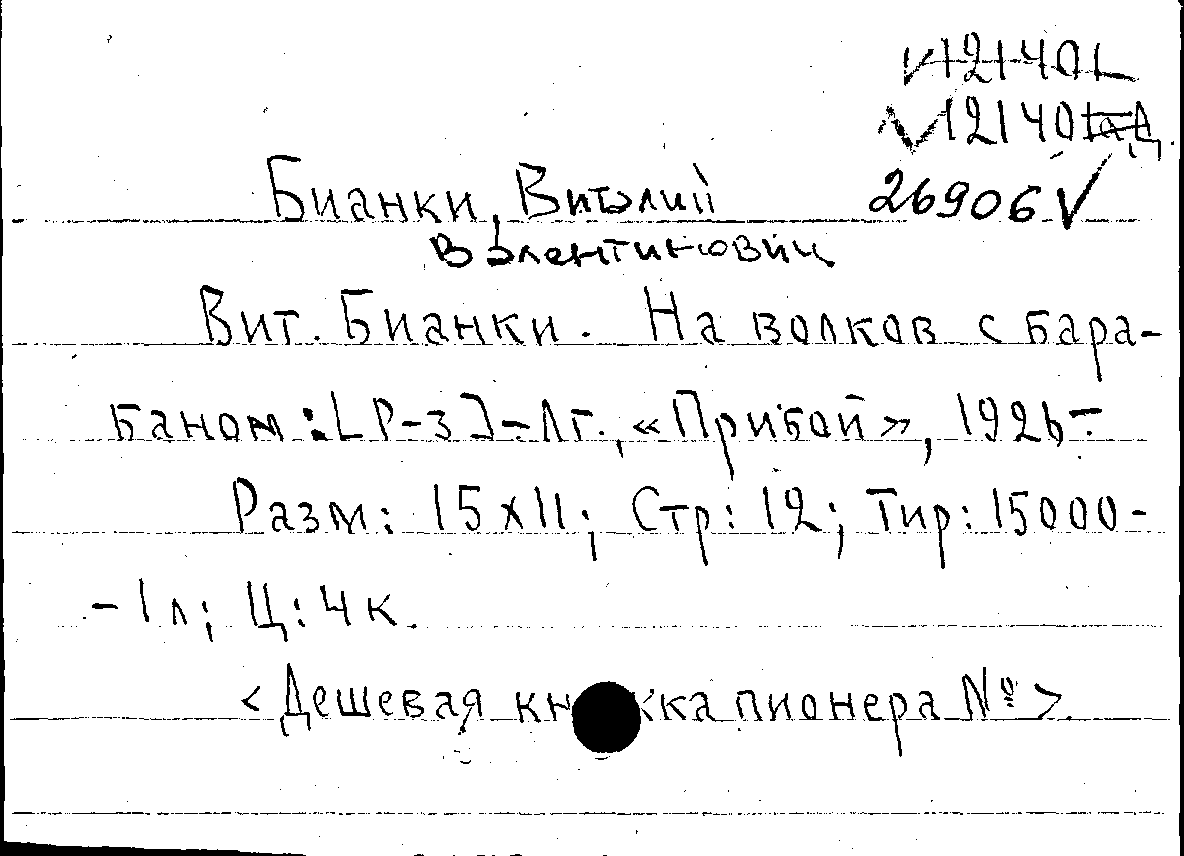 V121401
V12140
Бианки, Виталий 26906 V
Валентинович
Вит. Бианки. На волков с бара-
баном: [Р-з] - Лг., «Прибой», 1926 -
Разм: 15х11; Стр: 12; Тир: 15000 -
- 1 л; Ц: 4 к.
<Дешевая кн жка пионера №>